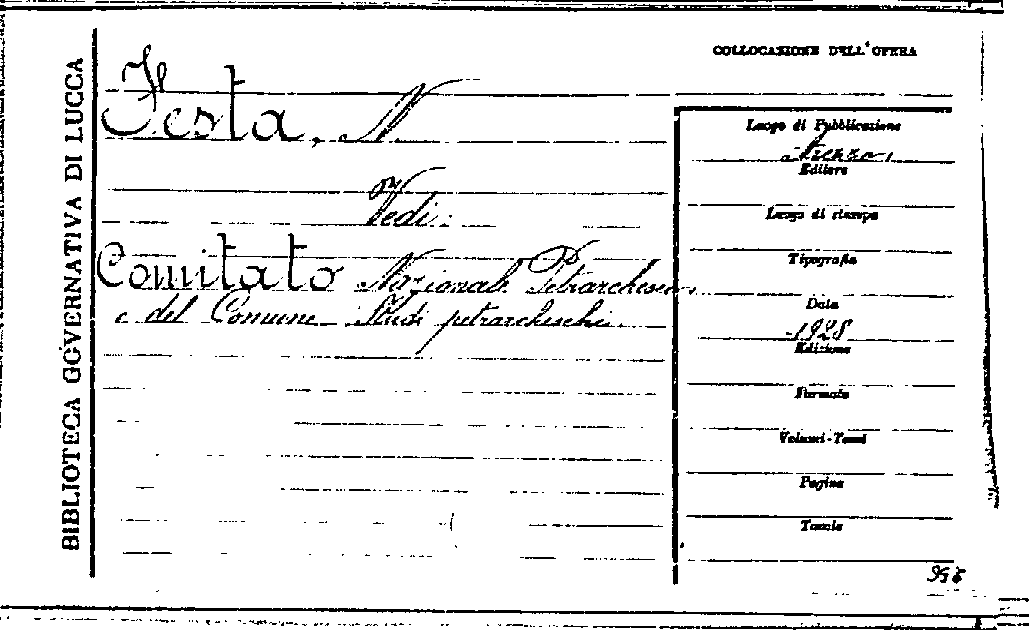 BIBLIOTECA GOVERNATIVA DI LUCCA
COLLOCAZIONE DELL'OPERA
Festa, N.
Vedi:
Comitato Nazionale Petrarchesco
e del Comune Studi petrarcheschi.
Luogo di Pubblicazione
Arezzo,
Editore
Luogo di stampa
Tipografia
Data
1928
Edizione
Formato
Volumi-Tomi
Pagine
Tavole